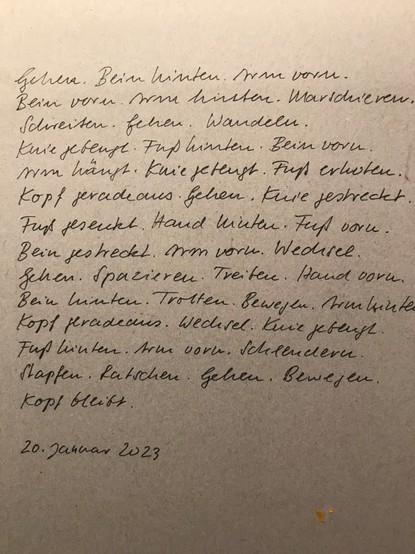 Gehen. Bein hinten. Arm vorn.
Bein vorn. Arm hinten. Marschieren.
Schreiten. Gehen. Wandeln.
Knie gebeugt. Fuß hinten. Bein vorn.
Arm hängt. Knie gebeugt. Fuß erhoben.
Kopf geradeaus. Gehen. Knie gestreckt.
Fuß gesenkt. Hand hinten. Fuß vorn.
Bein gestreckt. Arm vorn. Wechsel.
Gehen. Spazieren. Treiten. Hand vorn.
Bein hinten. Trotten. Bewegen. Arm hinten
Kopf geradeaus. Wechsel. Knie gebeugt.
Fuß hinten. Arm vorn. Schlendern.
Stapfen. Latschen. Gehen. Bewegen.
Kopf bleibt.
20. Januar 2023